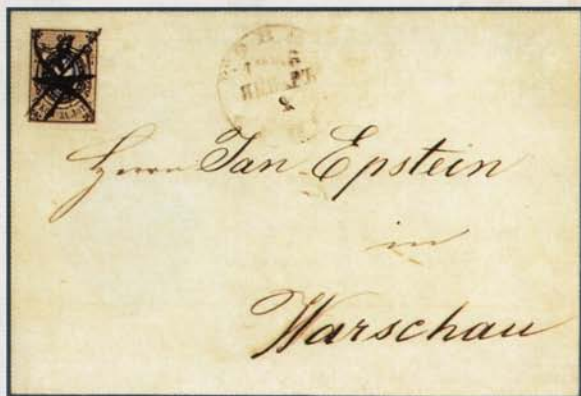 ЯНВАРЯ
Herrn Jan Epstein
in
Warschau